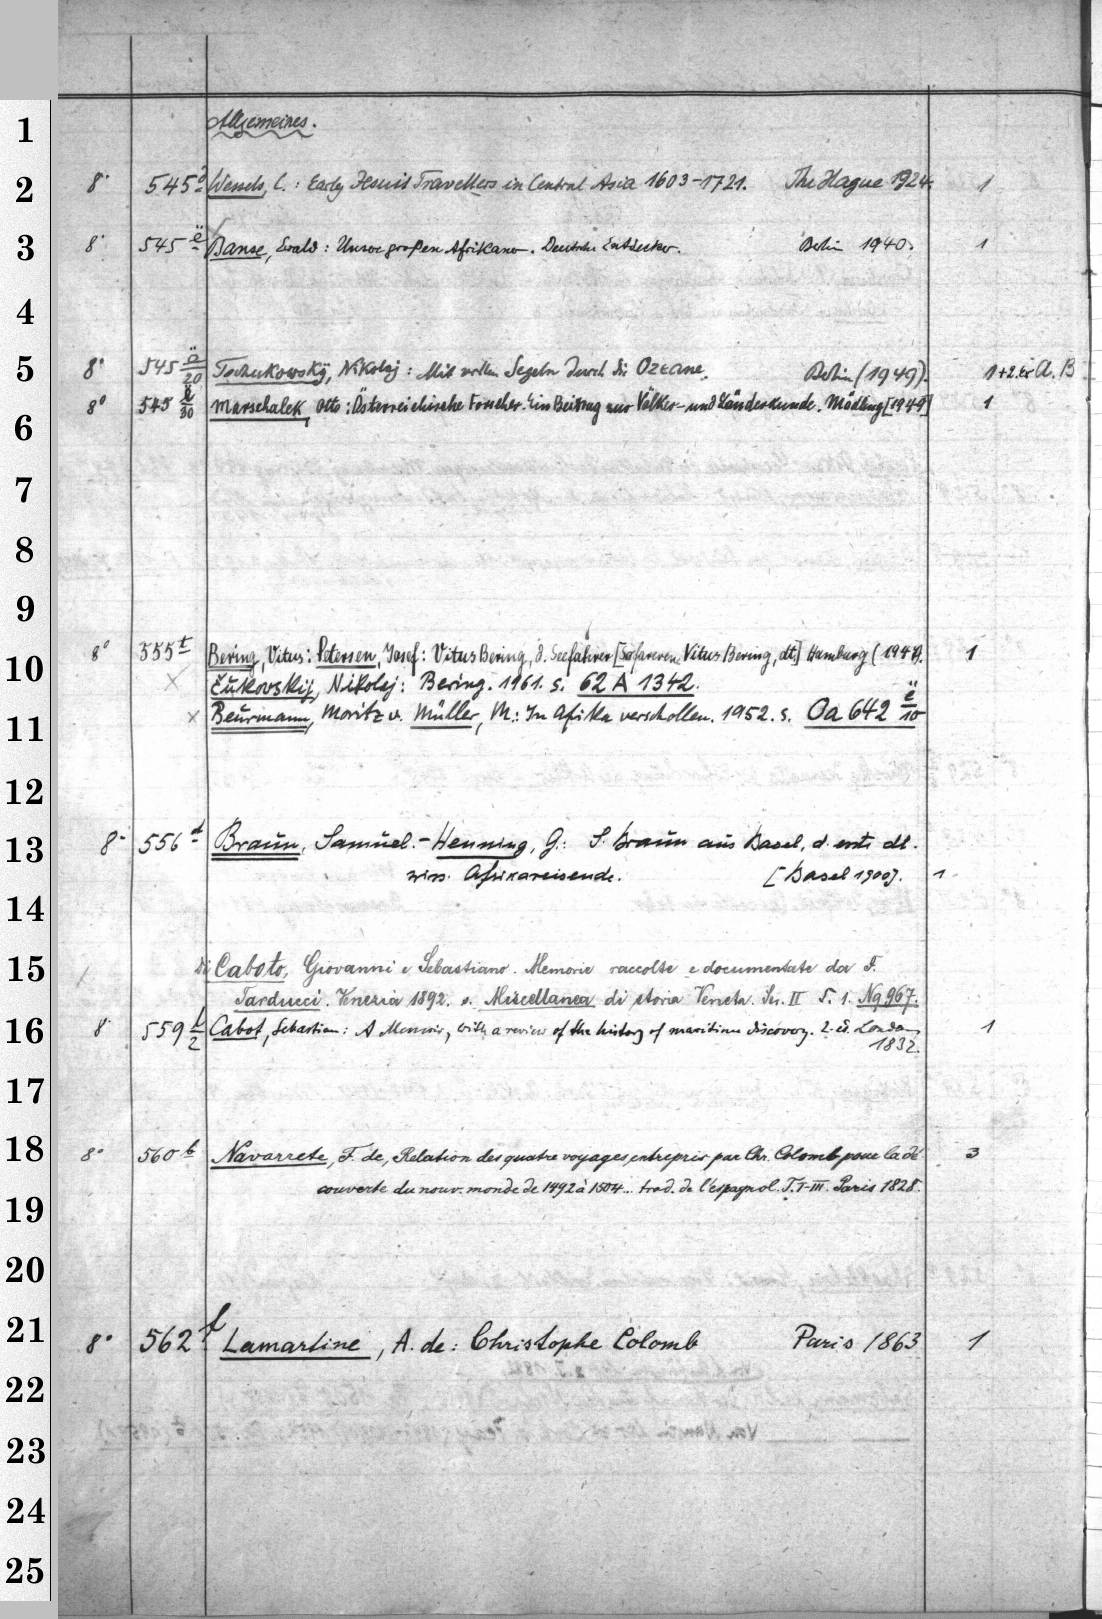 Allgemeines.
8° 545 Wessels, C.: Early Jesuit Travellers in Central Asia 1603-1721. The Hague 1924. 1
8° 545 ë Banse, Ewald: Unsre großen Afrikaner. Deutsche Entdecker. Berlin 1940. 1
8° 545 ä/20 Tschukowskÿ, Nikolaj: Mit vollen Segeln durch die Ozeane. Berlin (1949). 1+2.Ex A.B
8° 545 /30 Marschalek, Otto: Österreichische Forscher. Ein Beitrag zur Völker- und Länderkunde. Mödling [1949] 1
8° 555 t Bering, Vitus: Petersen, Josef: Vitus Bering, d. Seefahrer [Sofareren Vitus Bering, dt.] Hamburg (1947). 1
x Čukovskij, Nikolaj: Bering. 1961. s. 62 A 1342.
x Beurmann, Moritz v. Müller, M.: In Afrika verschollen. 1952. s. Oa 642 ë/10
8° 556 d Braun, Samuel. - Henning, G.: S. Braun aus Basel, d. erste dt.
wiss. Afrikareisende. [Basel 1900]. 1
Di Caboto, Giovanni e Sebastiano. Memorie raccolte e documentate da F.
Tarducci. Venezia 1892. s. Miscellanea di storia Veneta. Ser. II T. 1. Nq 967.
8° 559 l/2 Cabot, Sebastian: A Memoir, with a review of the history of maritime discovery. 2. ed. London 1
1832.
8° 560 b Navarrete, F. de, Relation des quatre voyages entrepris par Chr. Colomb pour la dé- 3
couverte du nouv. monde de 1492 à 1504... trad. de l'espagnol. T. I-III. Paris 1828.
8° 562 f Lamartine, A. de: Christophe Colomb Paris 1863 1
1
2
3
4
5
6
7
8
9
10
11
12
13
14
15
16
17
18
19
20
21
22
23
24
25